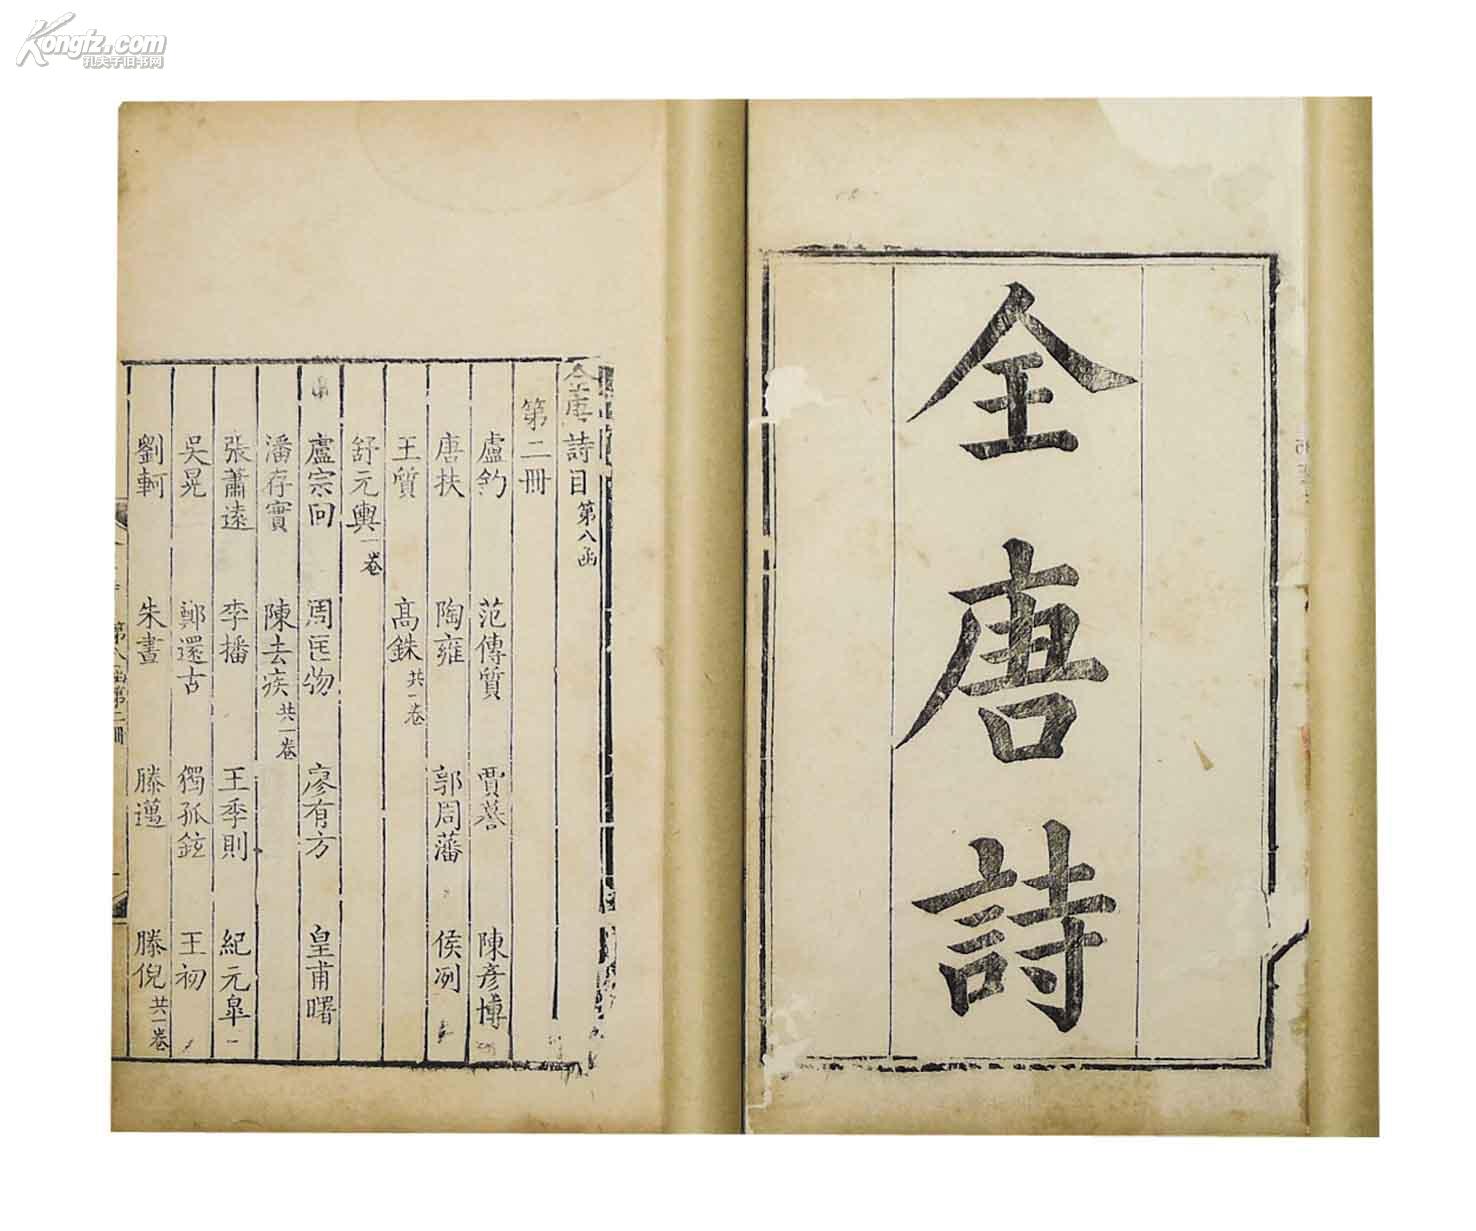 Kongfz.com
孔夫子旧书网
全唐詩
全唐詩目第八函
第二冊
盧鈞 范傳質 賈䇹 陳彥博
唐扶 陶雍 郭周藩 侯冽
王質 高銖共一卷
舒元輿一卷
盧宗回 周匡物 廖有方 皇甫曙
潘存實 陳去疾共一卷
張蕭遠 李播 王季則 紀元皐
吳晃 鄭還古 獨孤鉉 王初
劉軻 朱晝 滕邁 滕倪共一卷
第八函第二冊